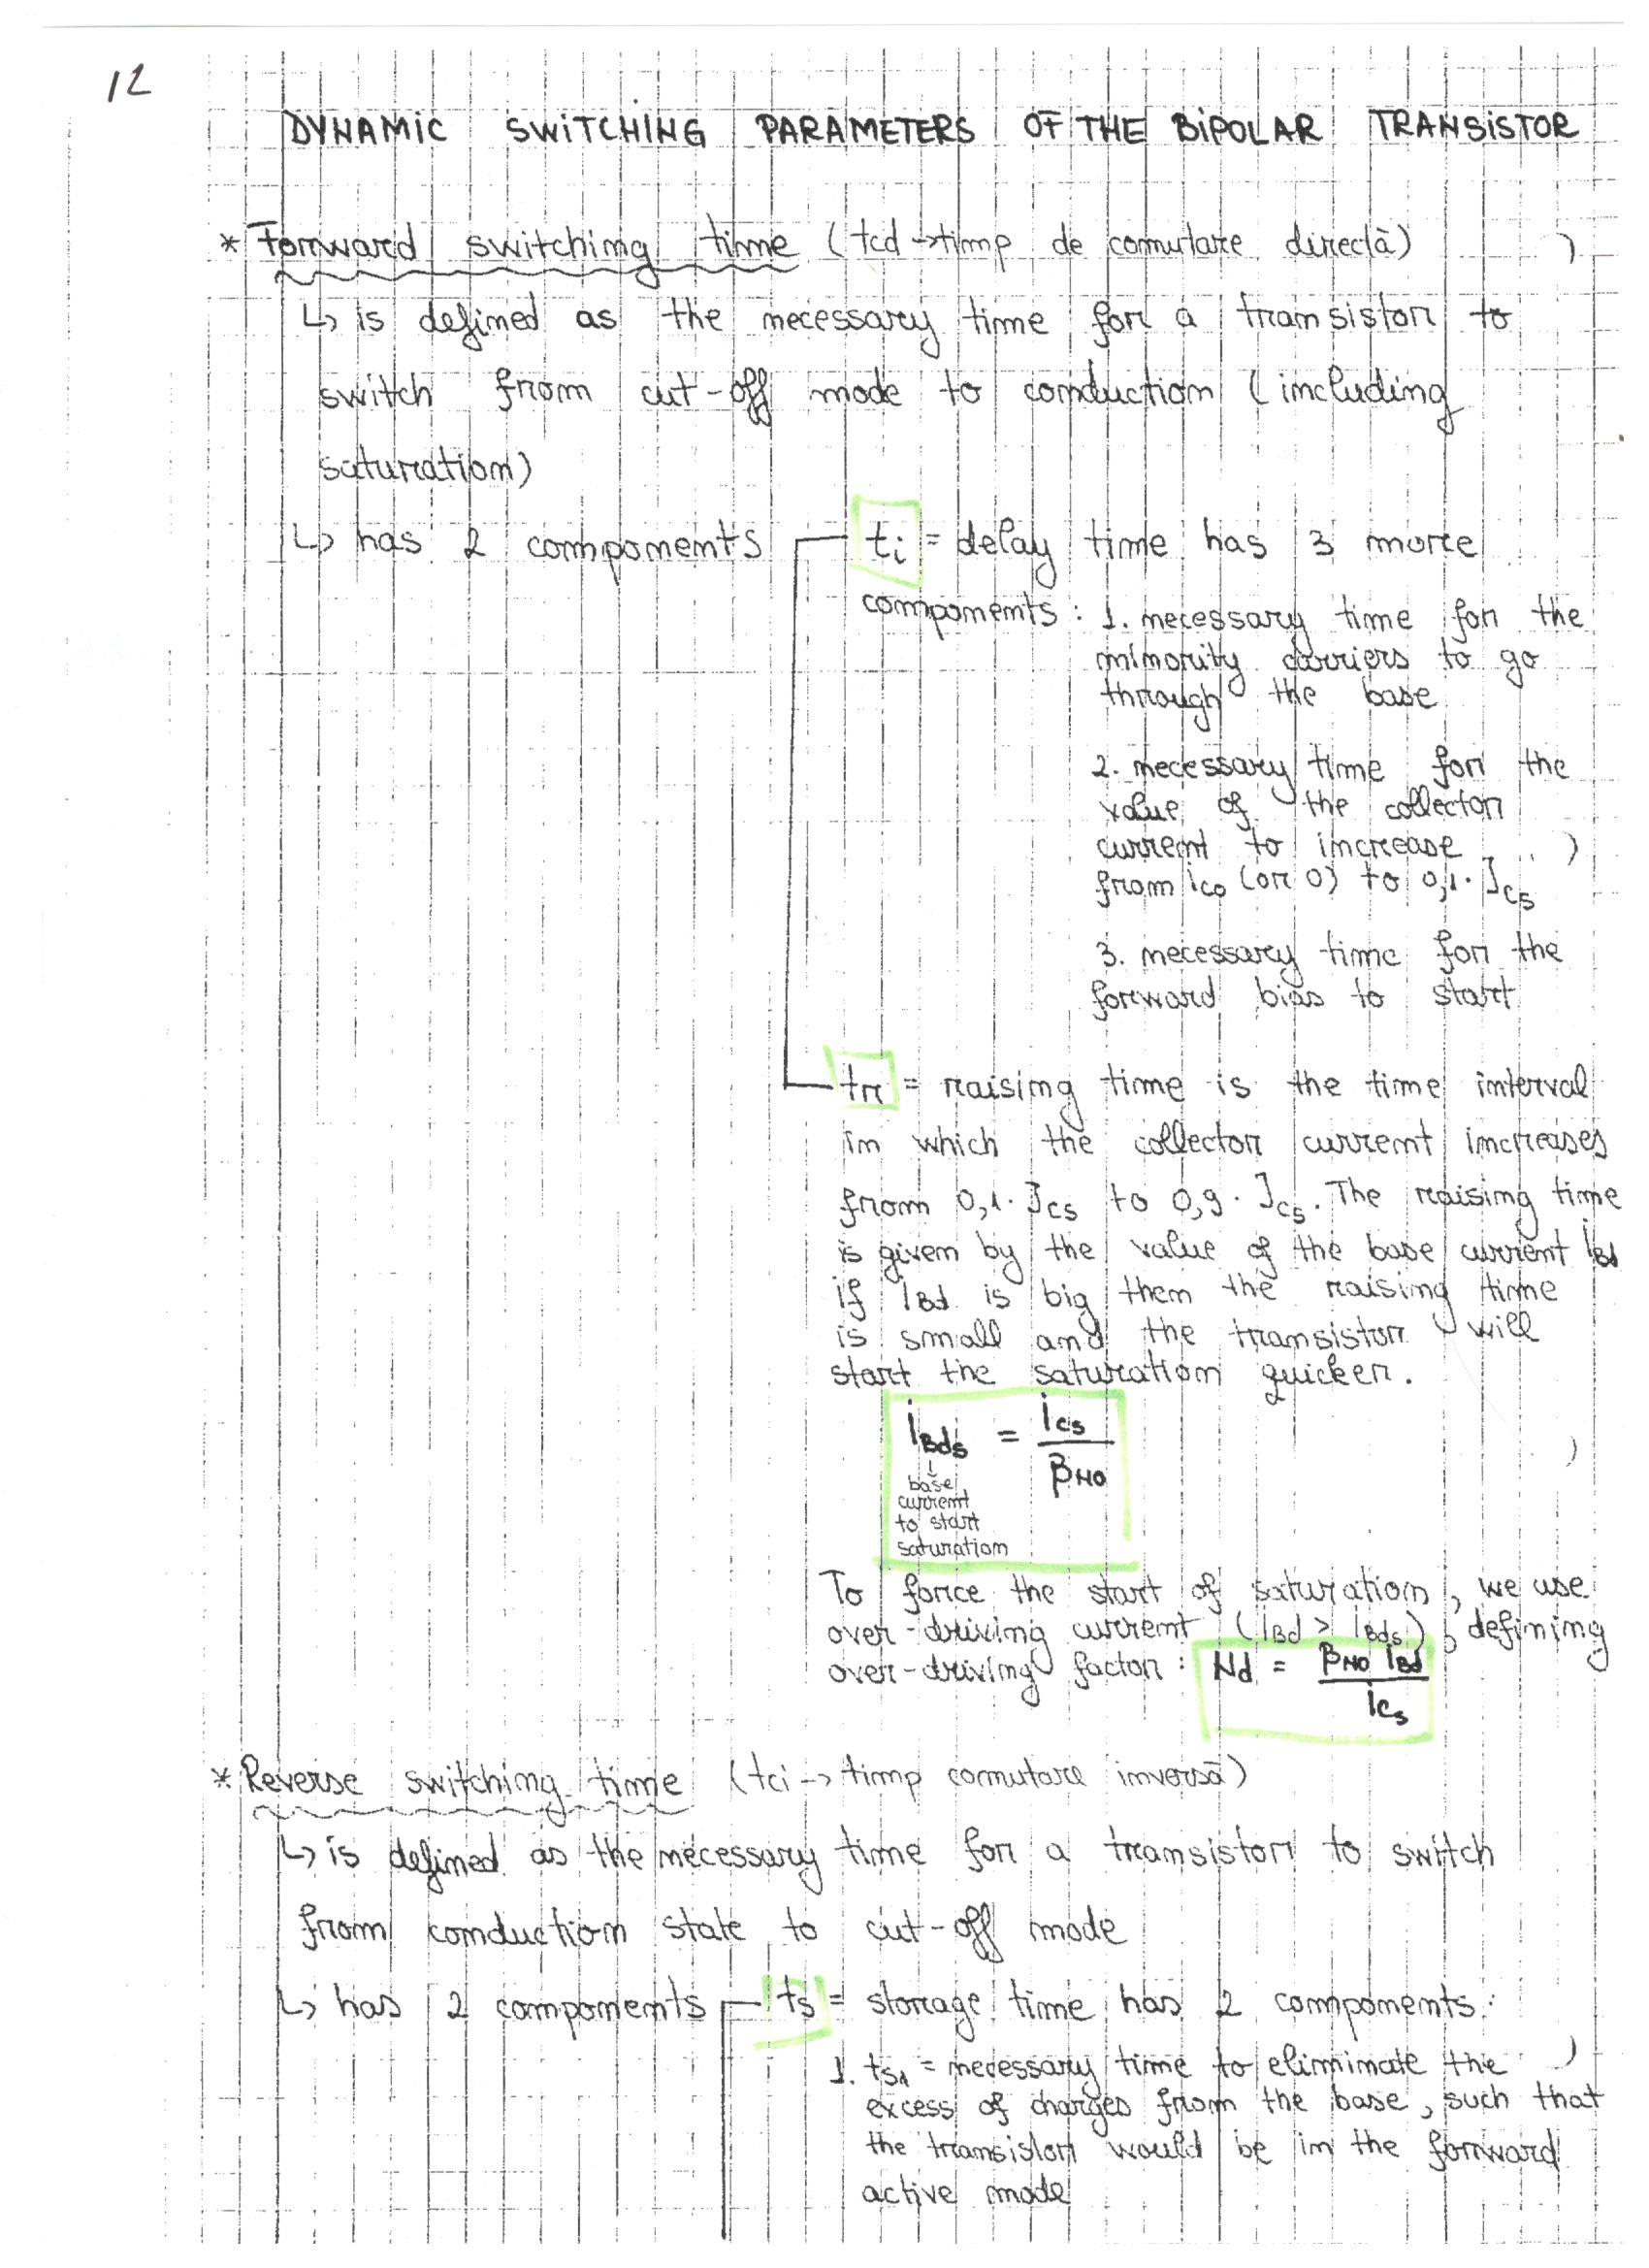 12
DYNAMIC SWITCHING PARAMETERS OF THE BIPOLAR TRANSISTOR
* Forward switching time (tcd → timp de comutare directă)
↳ is defined as the necessary time for a transistor to
switch from cut-off mode to conduction (including
saturation)
↳ has 2 components
ti = delay time has 3 more
components: 1. necessary time for the
minority carriers to go
through the base
2. necessary time for the
value of the collector
current to increase
from ico (or 0) to 0,1 · Ics
3. necessary time for the
forward bias to start
tr = raising time is the time interval
in which the collector current increases
from 0,1 · Ics to 0,9 · Ics. The raising time
is given by the value of the base current iBd
if iBd is big then the raising time
is small and the transistor will
start the saturation quicker.
iBds = ics / βNo
base
current
to start
saturation
To force the start of saturation, we use
over-driving current (iBd > iBds), defining
over-driving factor: Nd = βNo iBd / ics
* Reverse switching time (tci → timp comutare inversă)
↳ is defined as the necessary time for a transistor to switch
from conduction state to cut-off mode
↳ has 2 components
ts = storage time has 2 components:
1. ts1 = necessary time to eliminate the
excess of charges from the base, such that
the transistor would be in the forward
active mode